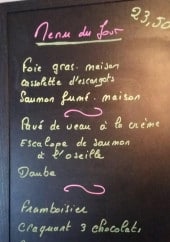 23,50
Menu du Jour
Foie gras maison
Cassolette d'escargots
Saumon fumé maison
Pavé de veau à la crème
Escalope de saumon
à l'oseille
Daube
Framboisier
Craquant 3 chocolats